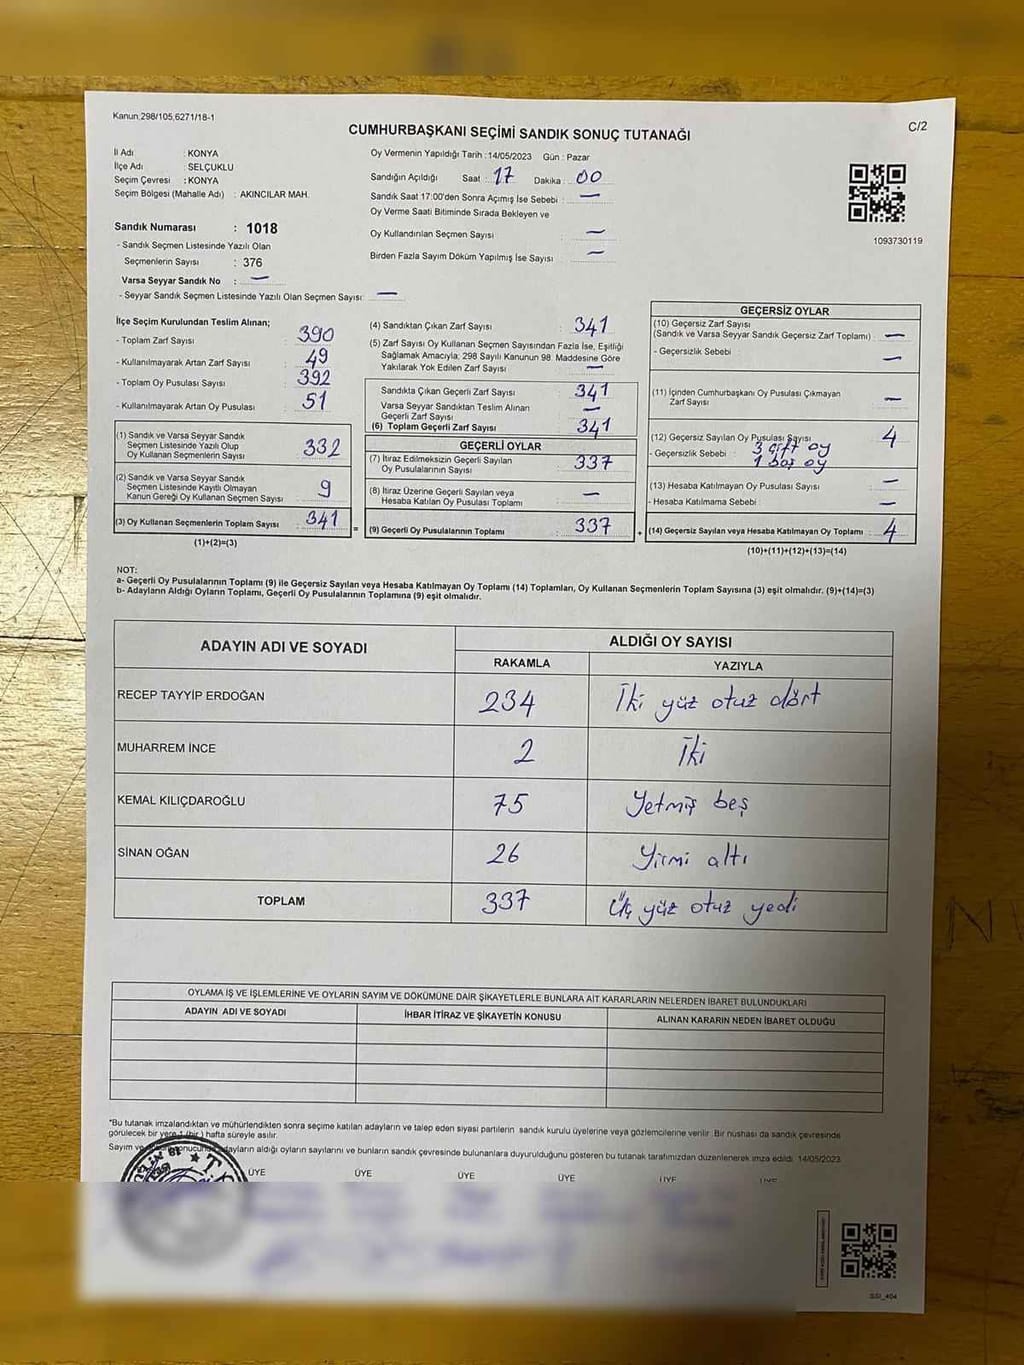 Kanun,298/105,6271/18-1
C/2
CUMHURBAŞKANI SEÇİMİ SANDIK SONUÇ TUTANAĞI
İl Adı : KONYA
İlçe Adı : SELÇUKLU
Seçim Çevresi : KONYA
Seçim Bölgesi (Mahalle Adı) : AKINCILAR MAH.
Sandık Numarası : 1018
- Sandık Seçmen Listesinde Yazılı Olan
Seçmenlerin Sayısı : 376
Varsa Seyyar Sandık No : —
- Seyyar Sandık Seçmen Listesinde Yazılı Olan Seçmen Sayısı: —
Oy Vermenin Yapıldığı Tarih :14/05/2023 Gün : Pazar
Sandığın Açıldığı Saat : 17 Dakika : 00
Sandık Saat 17:00'den Sonra Açımış İse Sebebi : —
Oy Verme Saati Bitiminde Sırada Bekleyen ve
Oy Kullandırılan Seçmen Sayısı : —
Birden Fazla Sayım Döküm Yapılmış İse Sayısı : —
1093730119
İlçe Seçim Kurulundan Teslim Alınan;
- Toplam Zarf Sayısı : 390
- Kullanılmayarak Artan Zarf Sayısı : 49
- Toplam Oy Pusulası Sayısı : 392
- Kullanılmayarak Artan Oy Pusulası : 51
(1) Sandık ve Varsa Seyyar Sandık
Seçmen Listesinde Yazılı Olup
Oy Kullanan Seçmenlerin Sayısı : 332
(2) Sandık ve Varsa Seyyar Sandık
Seçmen Listesinde Kayıtlı Olmayan
Kanun Gereği Oy Kullanan Seçmen Sayısı : 9
(3) Oy Kullanan Seçmenlerin Toplam Sayısı : 341
(1)+(2)=(3)
(4) Sandıktan Çıkan Zarf Sayısı : 341
(5) Zarf Sayısı Oy Kullanan Seçmen Sayısından Fazla İse, Eşitliği
Sağlamak Amacıyla; 298 Sayılı Kanunun 98. Maddesine Göre
Yakılarak Yok Edilen Zarf Sayısı : —
Sandıkta Çıkan Geçerli Zarf Sayısı : 341
Varsa Seyyar Sandıktan Teslim Alınan
Geçerli Zarf Sayısı : —
(6) Toplam Geçerli Zarf Sayısı : 341
GEÇERLİ OYLAR
(7) İtiraz Edilmeksizin Geçerli Sayılan
Oy Pusulalarının Sayısı : 337
(8) İtiraz Üzerine Geçerli Sayılan veya
Hesaba Katılan Oy Pusulaları Toplamı : —
= (9) Geçerli Oy Pusulalarının Toplamı : 337 +
GEÇERSİZ OYLAR
(10) Geçersiz Zarf Sayısı
(Sandık ve Varsa Seyyar Sandık Geçersiz Zarf Toplamı) : —
- Geçersizlik Sebebi : —
(11) İçinden Cumhurbaşkanı Oy Pusulası Çıkmayan
Zarf Sayısı : —
(12) Geçersiz Sayılan Oy Pusulası Sayısı : 4
- Geçersizlik Sebebi : 3 çift oy
1 boş oy
(13) Hesaba Katılmayan Oy Pusulası Sayısı : —
- Hesaba Katılmama Sebebi : —
(14) Geçersiz Sayılan veya Hesaba Katılmayan Oy Toplamı : 4
(10)+(11)+(12)+(13)=(14)
NOT:
a- Geçerli Oy Pusulalarının Toplamı (9) ile Geçersiz Sayılan veya Hesaba Katılmayan Oy Toplamı (14) Toplamları, Oy Kullanan Seçmenlerin Toplam Sayısına (3) eşit olmalıdır. (9)+(14)=(3)
b- Adayların Aldığı Oyların Toplamı, Geçerli Oy Pusulalarının Toplamına (9) eşit olmalıdır.
ADAYIN ADI VE SOYADI ALDIĞI OY SAYISI
RAKAMLA YAZIYLA
RECEP TAYYİP ERDOĞAN 234 İki yüz otuz dört
MUHARREM İNCE 2 İki
KEMAL KILIÇDAROĞLU 75 Yetmiş beş
SİNAN OĞAN 26 Yirmi altı
TOPLAM 337 Üç yüz otuz yedi
OYLAMA İŞ VE İŞLEMLERİNE VE OYLARIN SAYIM VE DÖKÜMÜNE DAİR ŞİKAYETLERLE BUNLARA AİT KARARLARIN NELERDEN İBARET BULUNDUKLARI
ADAYIN ADI VE SOYADI İHBAR İTİRAZ VE ŞİKAYETİN KONUSU ALINAN KARARIN NEDEN İBARET OLDUĞU
*Bu tutanak imzalandıktan ve mühürlendikten sonra seçime katılan adayların ve talep eden siyasi partilerin sandık kurulu üyelerine veya gözlemcilerine verilir. Bir nüshası da sandık çevresinde
görülecek bir yere 1 (bir ) hafta süreyle asılır.
Sayım ve adayların aldığı oyların sayılarını ve bunların sandık çevresinde bulunanlara duyurulduğunu gösteren bu tutanak tarafımızdan düzenlenerek imza edildi. 14/05/2023
ÜYE ÜYE ÜYE ÜYE ÜYE